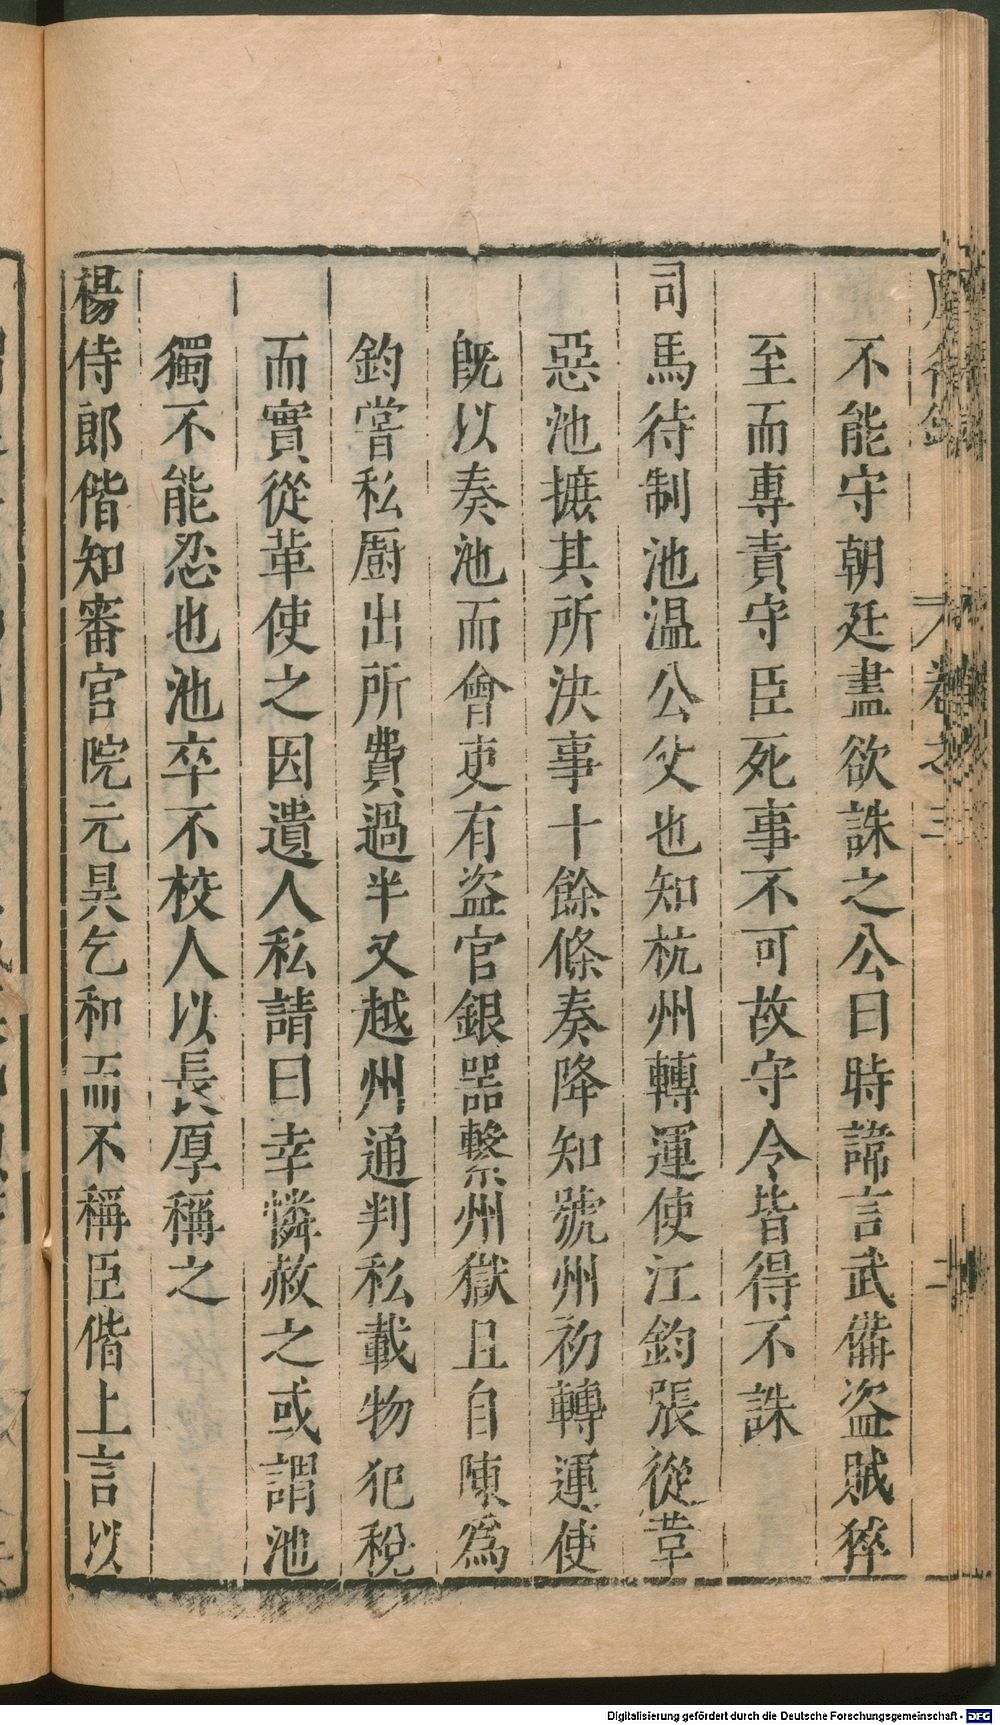 不能守朝廷盡欲誅之公曰時諱言武備盜賊猝
至而專責守臣死事不可故守令皆得不誅
司馬待制池温公父也知杭州轉運使江鈞張從革
惡池摭其所決事十餘條奏降知號州初轉運使
旣以奏池而會吏有盜官銀器繫州獄且自陳為
鈞嘗私厨出所費過半又越州通判私載物犯稅
而實從革使之因遺人私請曰幸憐赦之或謂池
獨不能忍也池卒不校人以長厚稱之
楊侍郎偕知審官院元昊乞和而不稱臣偕上言以
卷之三
二
Digitalisierung gefördert durch die Deutsche Forschungsgemeinschaft - DFG